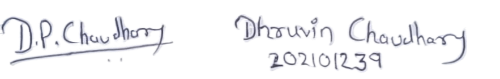 D.P. Chaudhary
Dhruvin Chaudhary
202101239